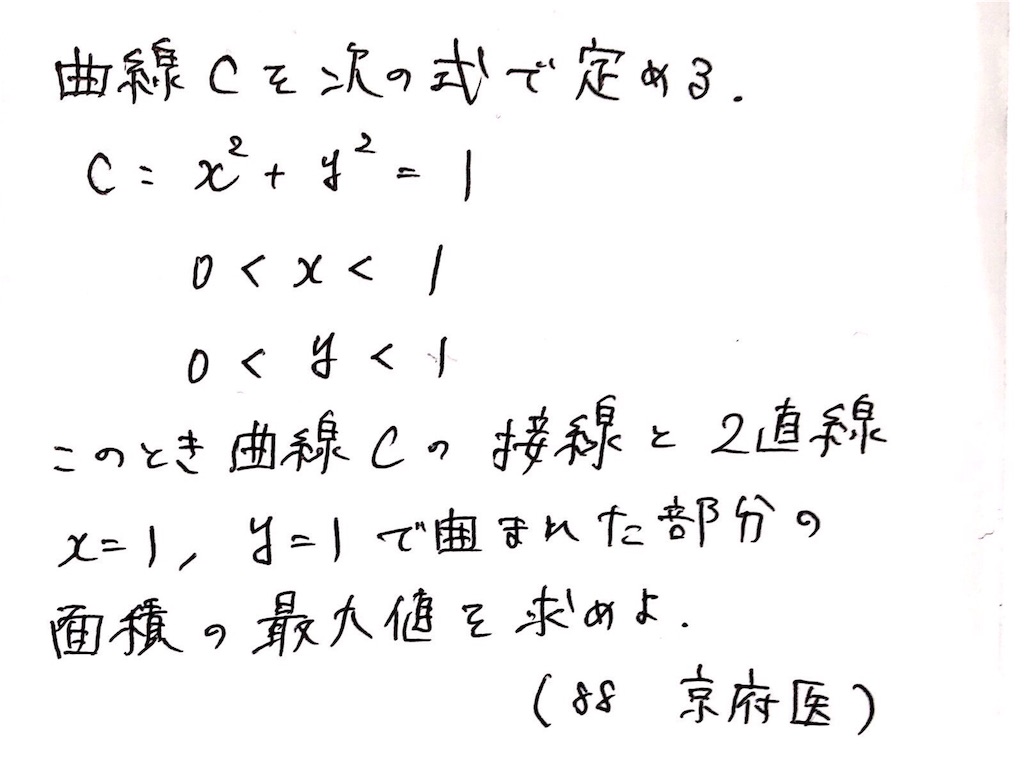 曲線Cを次の式で定める.
C: x² + y² = 1
0 < x < 1
0 < y < 1
このとき曲線Cの接線と2直線
x=1, y=1で囲まれた部分の
面積の最大値を求めよ.
(88 京府医)